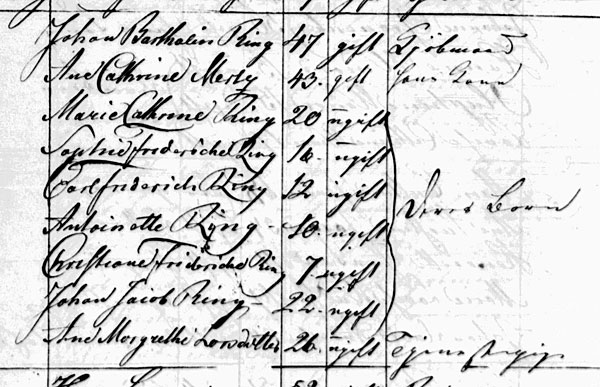 Johan Barthalin Ring 47 gift Gjöbmand
Ane Cathrine Mertz 43 gift hans Kone
Marie Cathrine Ring 20 ugift
Sophie Friderche Ring 18 ugift
Carl friderich Ring 12 ugift
Antoinette Ring 10 ugift
Deres Born
Christiane Friderche Ring 7 ugift
Johan Jacob Ring 22 ugift
Ane Margrethe Larsdatter 26 ugift Tjenestepige